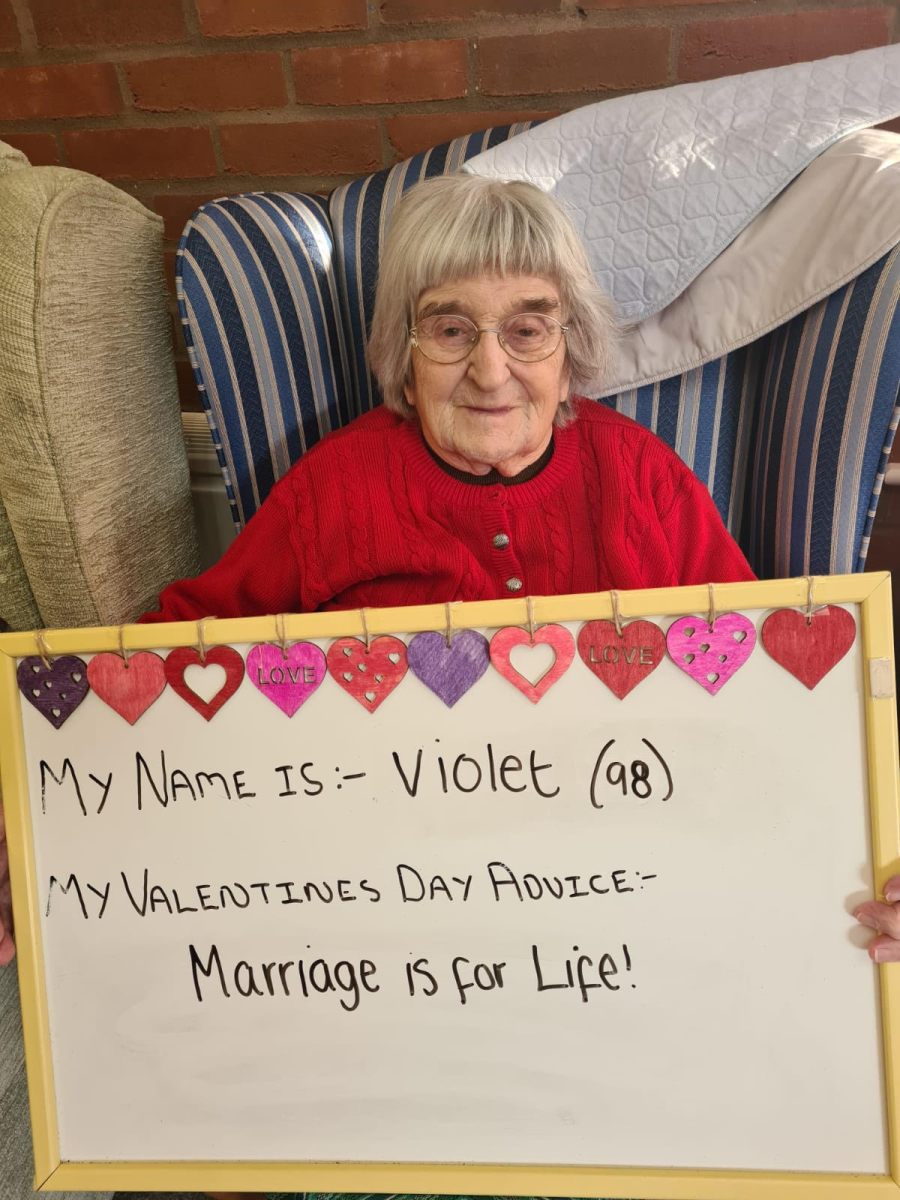 LOVE
LOVE
MY NAME IS:- Violet (98)
MY VALENTINES DAY ADVICE:-
Marriage is for Life!